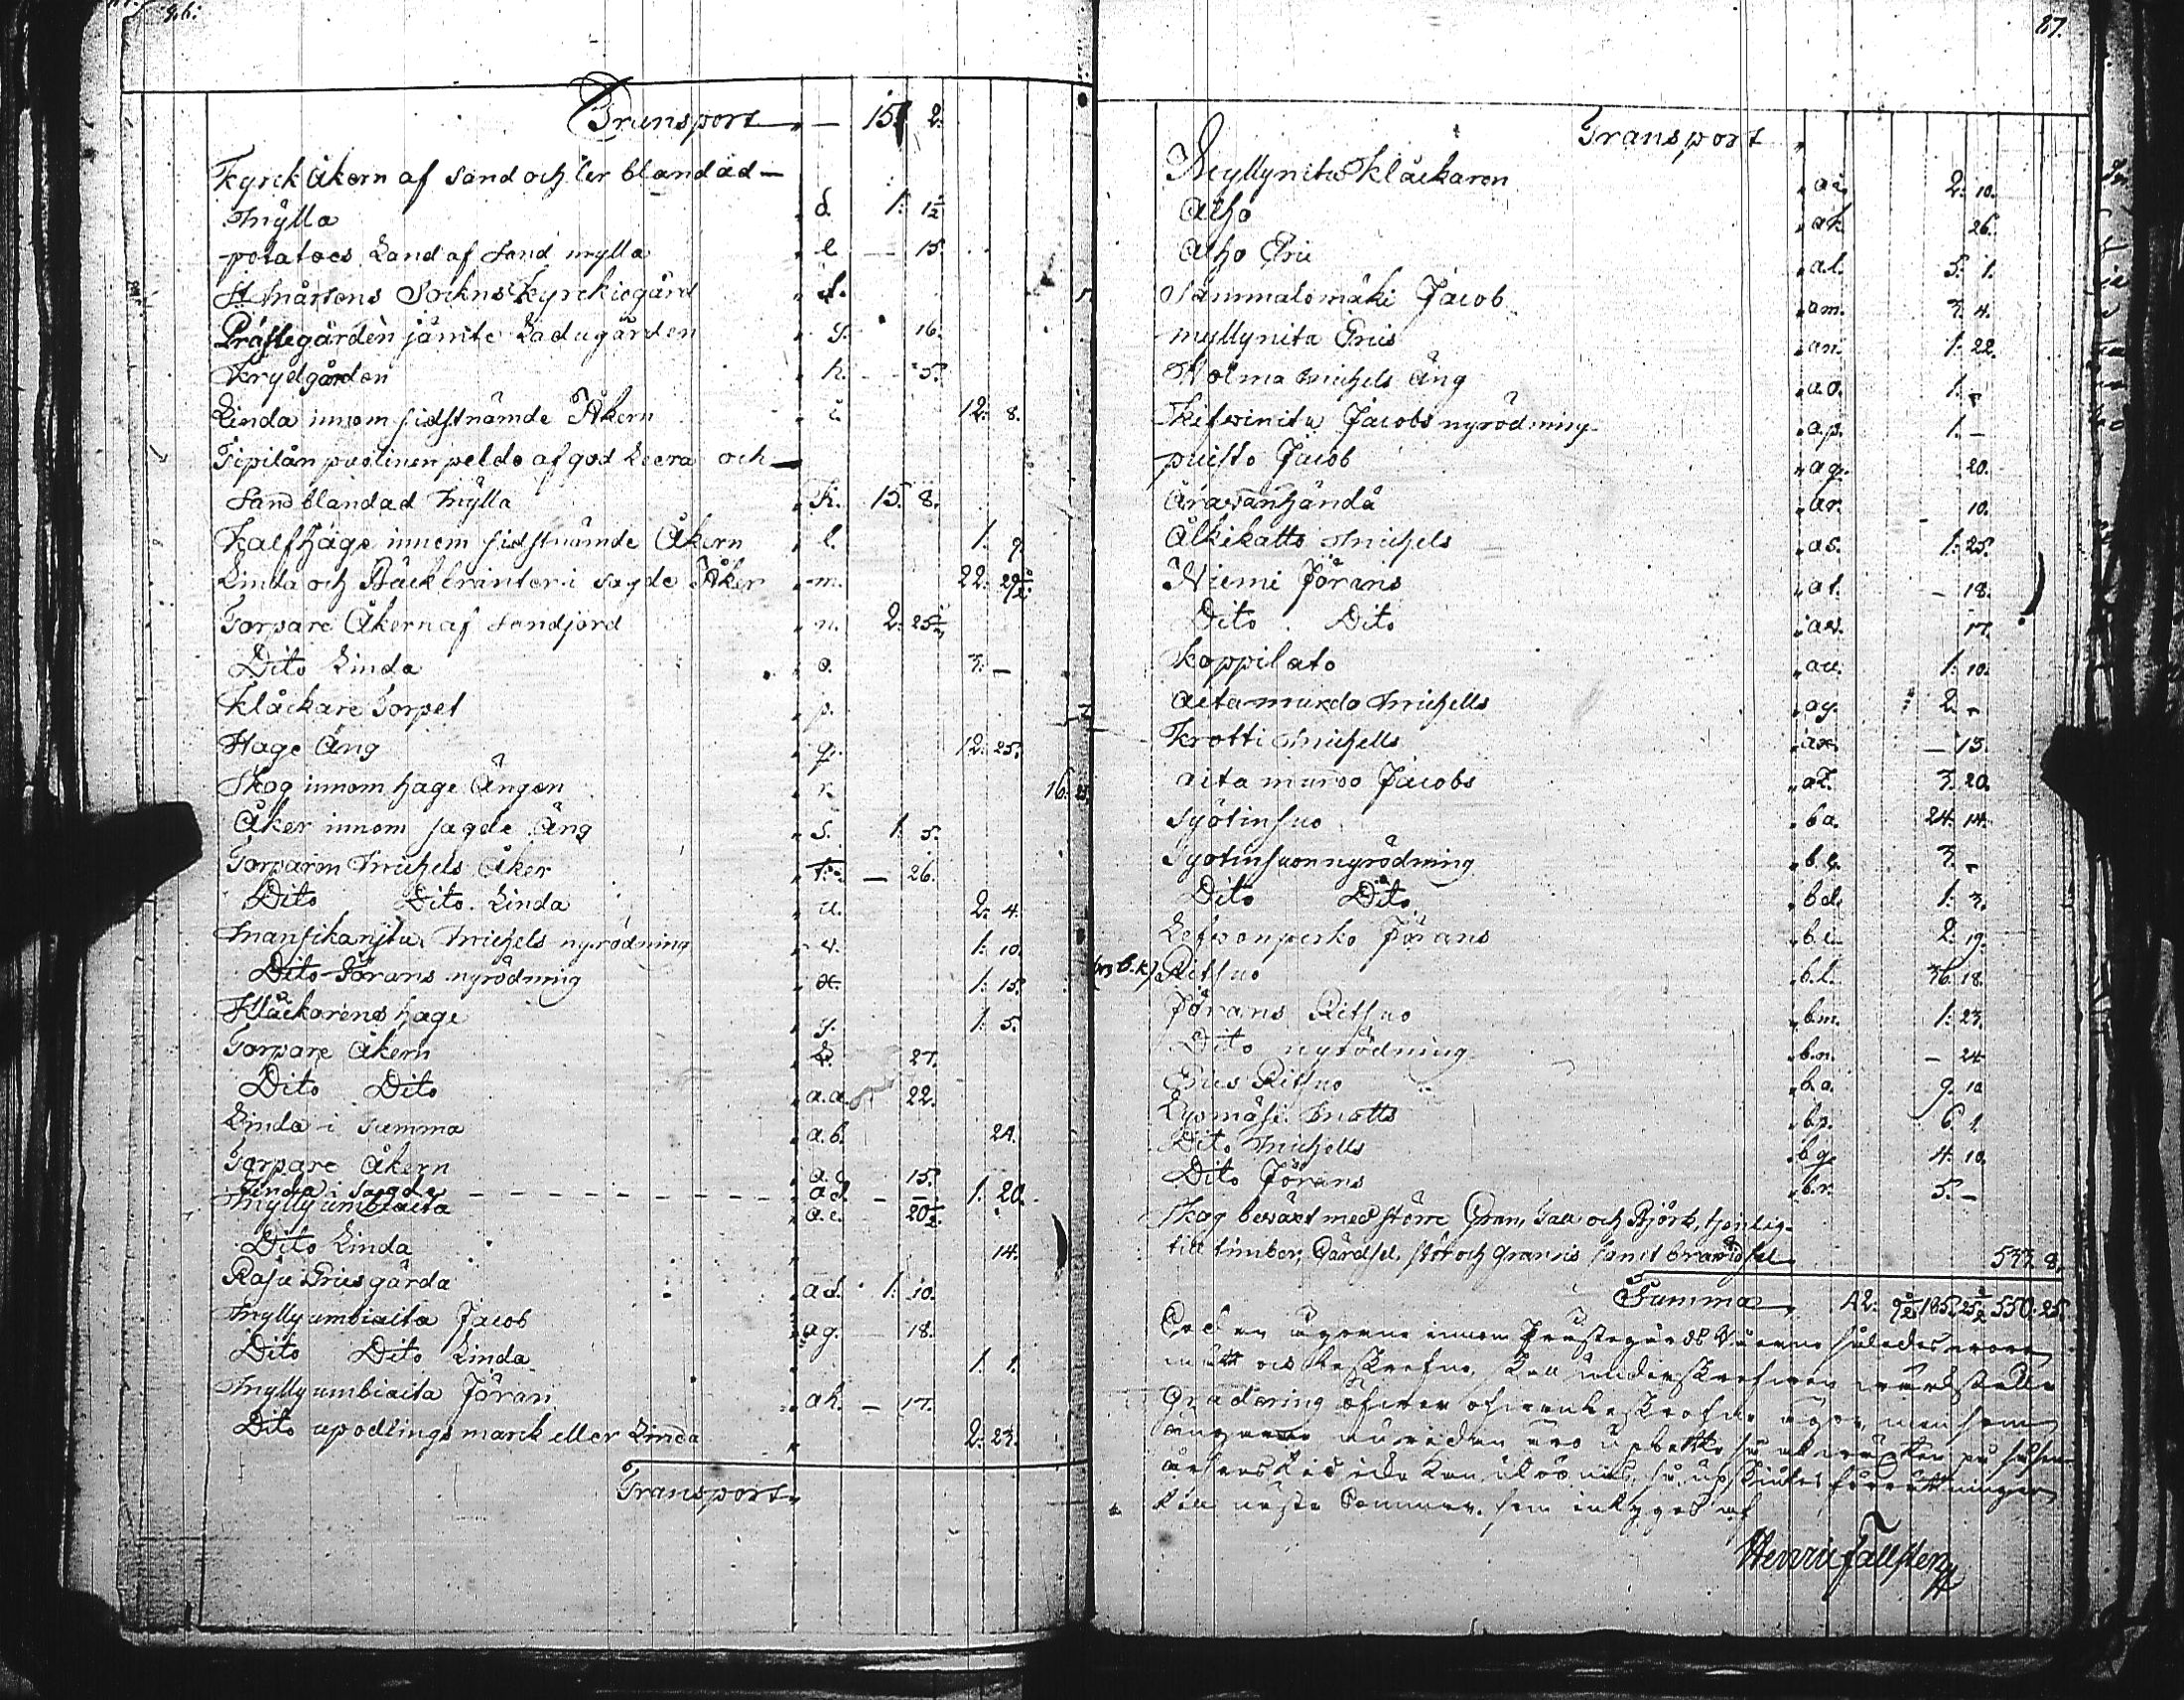 Transport „ — 15: 2.
Kyrck Åkern af Sand och ler blandad —
Mylla „ d. 1: 1½
potatoes Land af Sand mylla „ e. — 15.
St Mårtens Sockns Kyrckiogård „ f.
Prästegården jämte Ladugården „ g. 16.
Krydgården „ h. - - 5.
Linda innom sidstnämde Åkern „ i. 12: 8.
Pipilän puolinen peldo af god Leera och —
Sand blandad Mylla „ k. 15. 8.
Kalf Hage innom sidstnämde Åkern „ l. 1: 9.
Linda och Bäck bränter i sagde Åker „ m. 22: 29½
Torpare Åkern af Sandjord „ n. 2: 25½
Dito Linda „ o. 3. —
Klåckare Torpet „ p.
Hage Äng „ q. 12: 25.
Skog innom hage Ängen „ r. 16: 25.
Åker innom sagde Äng „ s. 1: 5.
Torparen Michels Åker „ t. — 26.
Dito Dito Linda „ u. 2: 4.
Michels nyrödning „ v. 1: 10.
Dito Jörans nyrödning „ x. 1: 15.
Klåckarens hage „ y. 1: 5.
Torpare Åkern „ z. 27.
Dito Dito „ a.a. 22.
Linda i summa „ a.b. 24.
Torpare Åkern „ a.c. 15.
Linda i sagde - - - - - - - „ ad. - — 1: 20.
Myllyumbiaita „ a.e. 20½
Dito Linda „ 14.
Rasu Griisgärda „ ad. 1: 10.
Myllyumbiaita Jacob „ ag. — 18.
Dito Dito Linda 1: 1.
Myllyumbiaita Jöran „ ah. — 17.
Dito upodlings marck eller Linda „ 2: 23.
Transport „
87.
Transport „
Myllynitu Klåckaren „ ai. 2: 10.
Alho „ ak. 26.
Alho Eric „ al. 5: 1.
Sammalomäki Jacob „ am. 3: 4.
Myllynita Eriis „ an. 1: 22.
Holma Michels Äng „ ao. 1: -
Kifwinitu Jacobs nyrödning „ ap. 1: —
puisto Jacob „ aq. 20.
Aravanhändä „ ar. - 10.
Älkikatto Michels „ as. 1: 25.
Niemi Jörans „ at. — 18.
Dito Dito „ av. 17.
Koppilato „ au. 1: 10.
Aitamurdo Michells „ ay. 2. -
Krotti Michells „ ax. — 15.
Aita murdo Jacobs „ az. 3. 20.
Syötinsuo „ ba. 24: 14.
Syötinsuon nyrödning „ b.c. 3. -
Dito Dito „ bd. 1: 3.
Lefvonperko Jörans „ b.e. 2: 19.
Ritsuo „ b.l. 36. 18.
Jörans Ritsuo „ b.m. 1: 23.
Dito nyrödning „ b.n. — 24.
Eriis Ritsuo „ b.o. 9. 10
Lysmäsi Matts „ b.p. 6. 1.
Dito Michells „ b.q. 4. 10.
Dito Jörans „ b.r. 5. —
Skog beväxt med större Gran, Tall och Björk, tjenlig
till timber, Gärdsel, stör och granris samt brändsel 533. 8.
Summa „ 42: 9 185. 25½ 550: 25.
innom Prästegårds således vore
mätt och beskrefne, skall underskrefven verkställa
Gradering öfver ofvanbeskrefne ägor, men som
ängarne nu redan äro så at på denna
årsens tid icke kan så upskiutes förrättningen
till nästa Sommar, som intygas af
Henric Fallsten